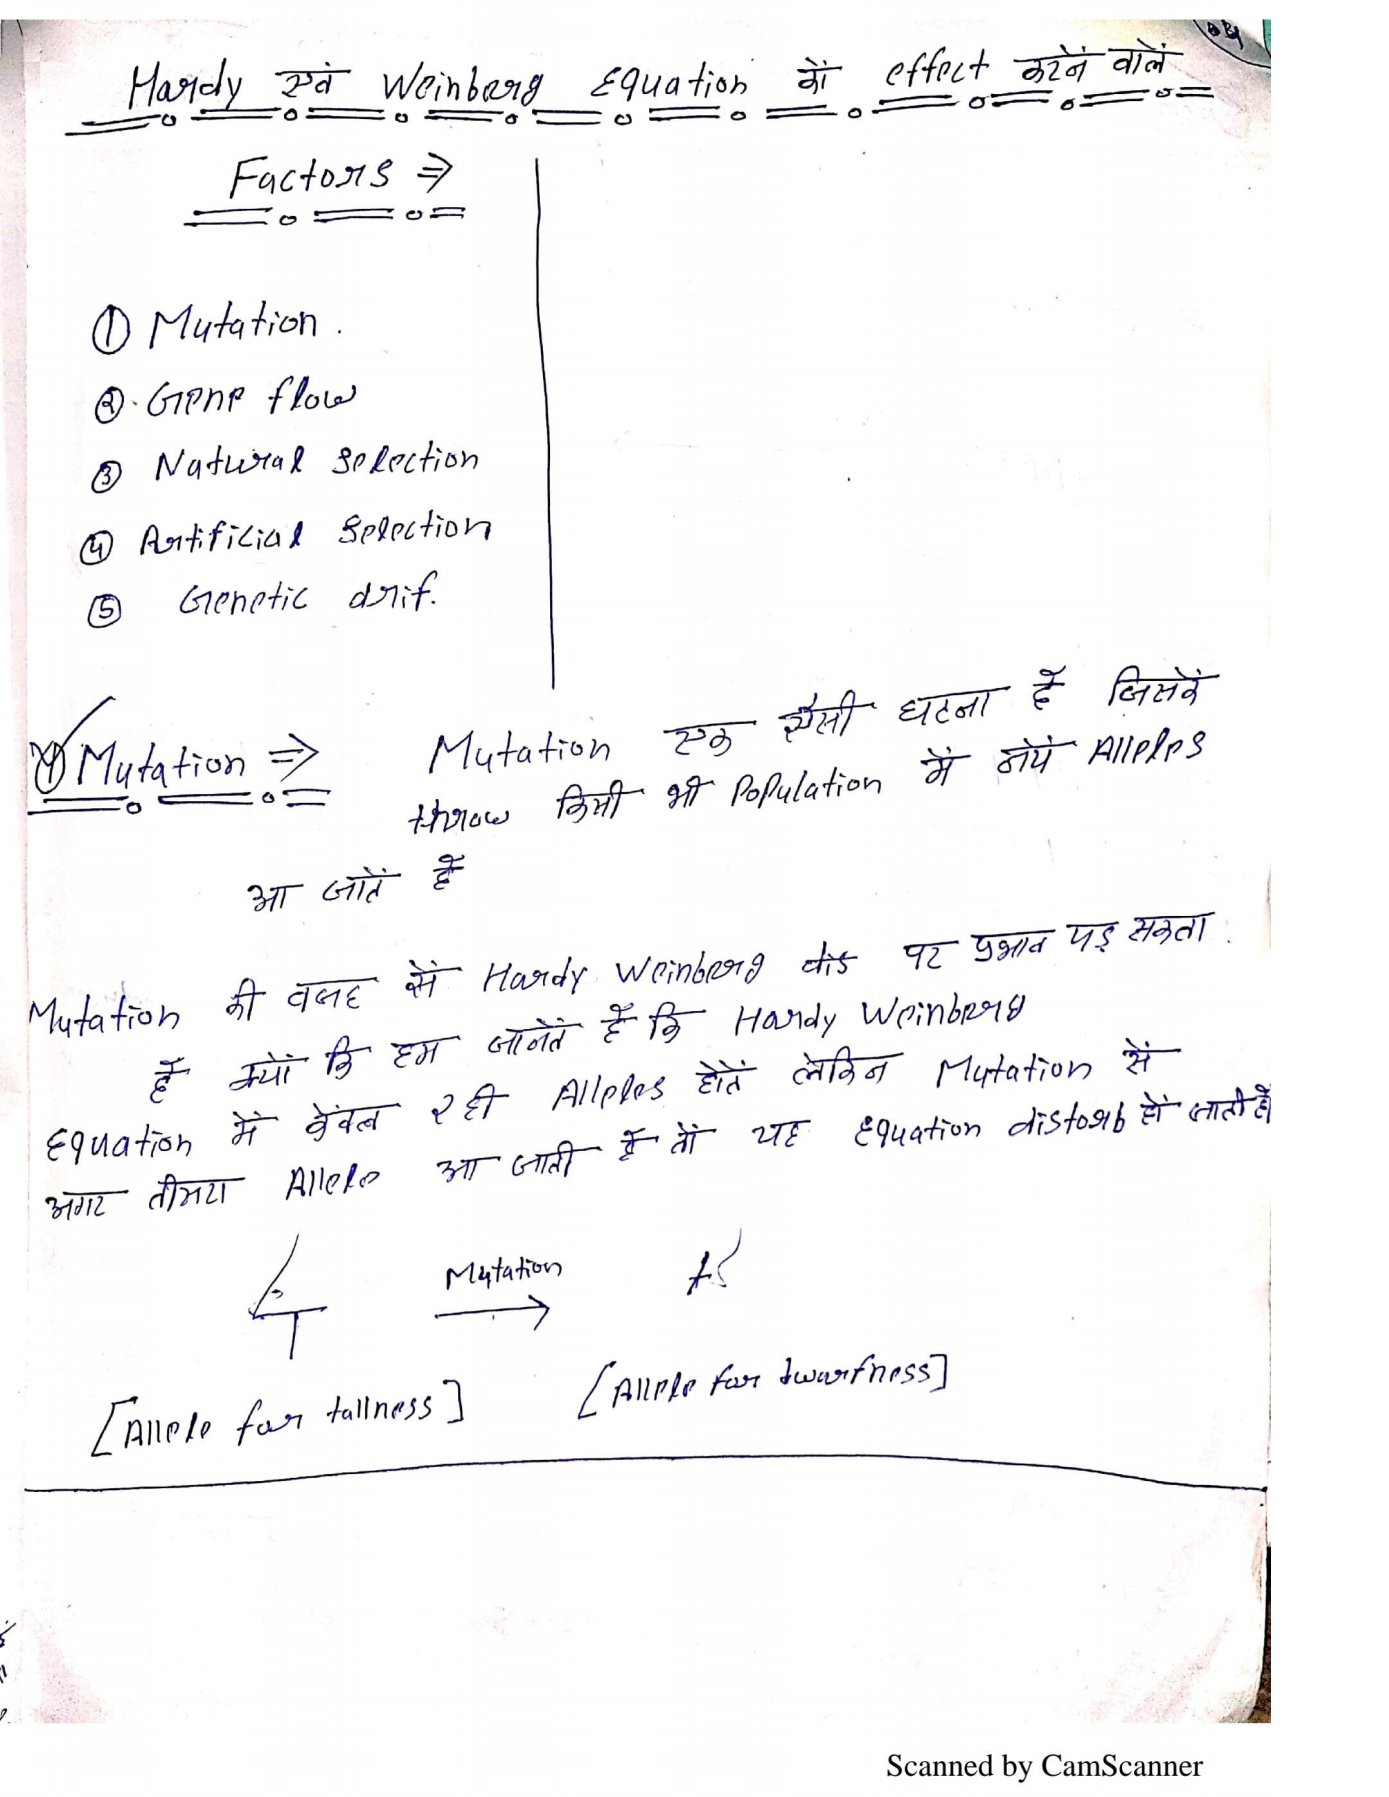 Hardy एवं Weinberg Equation कों effect करनें वालें
Factors ⇒
① Mutation.
② Gene flow
③ Natural selection
④ Artificial selection
⑤ Genetic drif.
Mutation ⇒ Mutation एक ऐसी घटना हैं जिसकें
throw किसी भी Population में नयें Alleles
आ जातें हैं
Mutation की वजह सें Hardy Weinberg पर प्रभाव पड़ सकता
हैं क्यों कि हम जानतें हैं कि Hardy Weinberg
Equation में केंवल २ ही Alleles होतें लेकिन Mutation सें
अगर तीसरा Allele आ जाती हैं तों यह Equation distorb हों जाती हैं
T Mutation → t
[Allele for tallness] [Allele for dwarfness]
Scanned by CamScanner